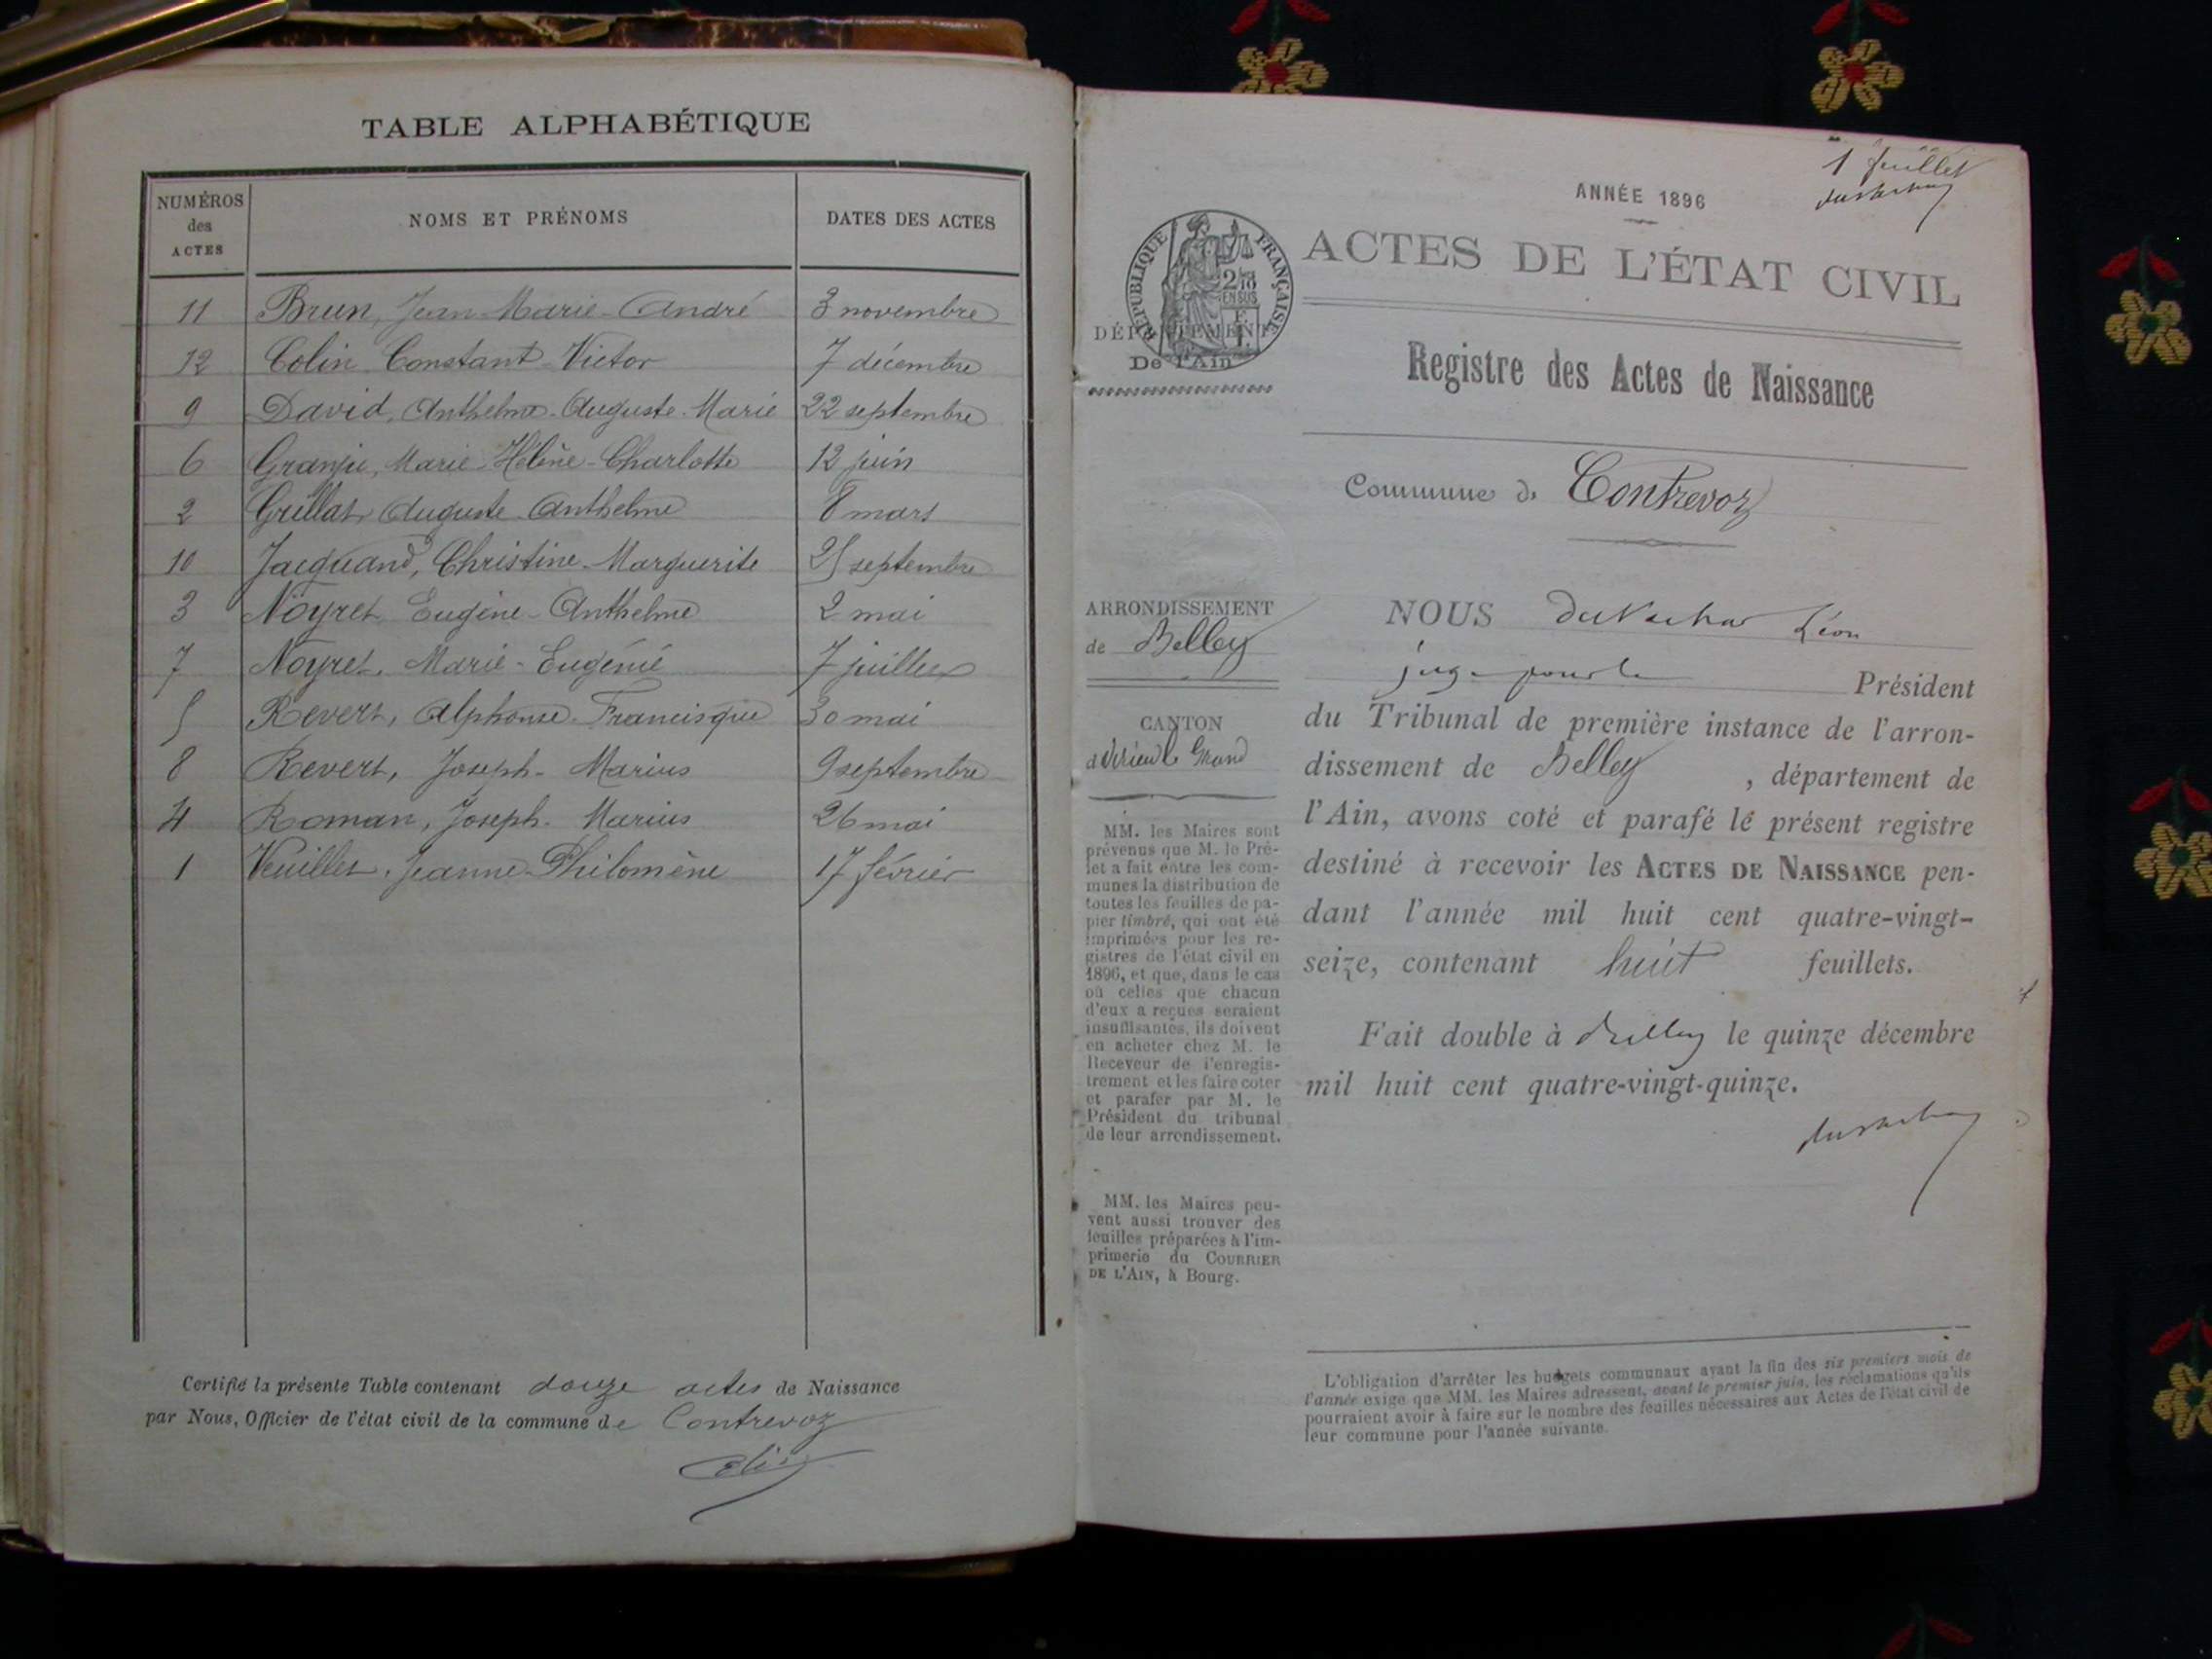 TABLE ALPHABÉTIQUE
NUMÉROS
des
ACTES
NOMS ET PRÉNOMS
DATES DES ACTES
11 Brun, Jean-Marie-André 3 novembre
12 Colin Constant-Victor 7 décembre
9 David, Anthelme-Auguste-Marie 22 septembre
6 Granje, Marie-Hélène-Charlotte 12 juin
2 Grillat, Auguste-Anthelme 8 mars
10 Jacquand, Christine-Marguerite 25 septembre
3 Noyret, Eugène-Anthelme 2 mai
7 Noyret, Marie-Eugénie 7 juillet
5 Revert, Alphonse-Francisque 30 mai
8 Revert, Joseph-Marius 9 septembre
4 Roman, Joseph-Marius 26 mai
1 Veuillet, Jeanne-Philomène 17 février
Certifié la présente Table contenant douze actes de Naissance
par Nous, Officier de l'état civil de la commune de Contrevoz
1 feuillet
ANNÉE 1896
ACTES DE L'ÉTAT CIVIL
RÉPUBLIQUE FRANÇAISE
2/10
EN SUS
DÉPARTEMENT
De l'Ain
Registre des Actes de Naissance
Commune de Contrevoz
ARRONDISSEMENT
de Belley
CANTON
de Virieu le Grand
MM. les Maires sont
prévenus que M. le Pré-
fet a fait entre les com-
munes la distribution de
toutes les feuilles de pa-
pier timbré, qui ont été
imprimées pour les re-
gistres de l'état civil en
1896, et que, dans le cas
où celles que chacun
d'eux a reçues seraient
insuffisantes, ils doivent
en acheter chez M. le
Receveur de l'enregis-
trement et les faire coter
et parafer par M. le
Président du tribunal
de leur arrondissement.
MM. les Maires peu-
vent aussi trouver des
feuilles préparées à l'im-
primerie du COURRIER
DE L'AIN, à Bourg.
NOUS Léon
juge pour le Président
du Tribunal de première instance de l'arron-
dissement de Belley , département de
l'Ain, avons coté et parafé le présent registre
destiné à recevoir les ACTES DE NAISSANCE pen-
dant l'année mil huit cent quatre-vingt-
seize, contenant huit feuillets.
Fait double à Belley le quinze décembre
mil huit cent quatre-vingt-quinze.
L'obligation d'arrêter les budgets communaux avant la fin des six premiers mois de
l'année exige que MM. les Maires adressent, avant le premier juin, les réclamations qu'ils
pourraient avoir à faire sur le nombre des feuilles nécessaires aux Actes de l'état civil de
leur commune pour l'année suivante.